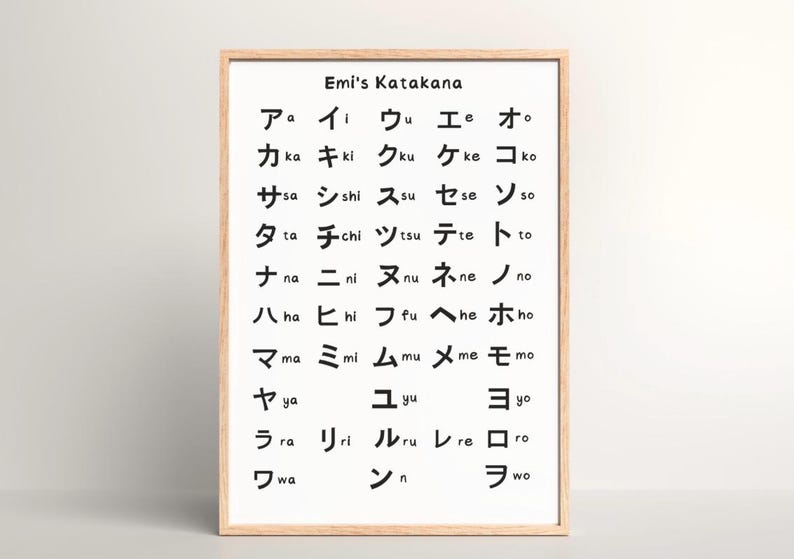 Emi's Katakana
ア a イ i ウ u エ e オ o
カ ka キ ki ク ku ケ ke コ ko
サ sa シ shi ス su セ se ソ so
タ ta チ chi ツ tsu テ te ト to
ナ na ニ ni ヌ nu ネ ne ノ no
ハ ha ヒ hi フ fu ヘ he ホ ho
マ ma ミ mi ム mu メ me モ mo
ヤ ya ユ yu ヨ yo
ラ ra リ ri ル ru レ re ロ ro
ワ wa ン n ヲ wo